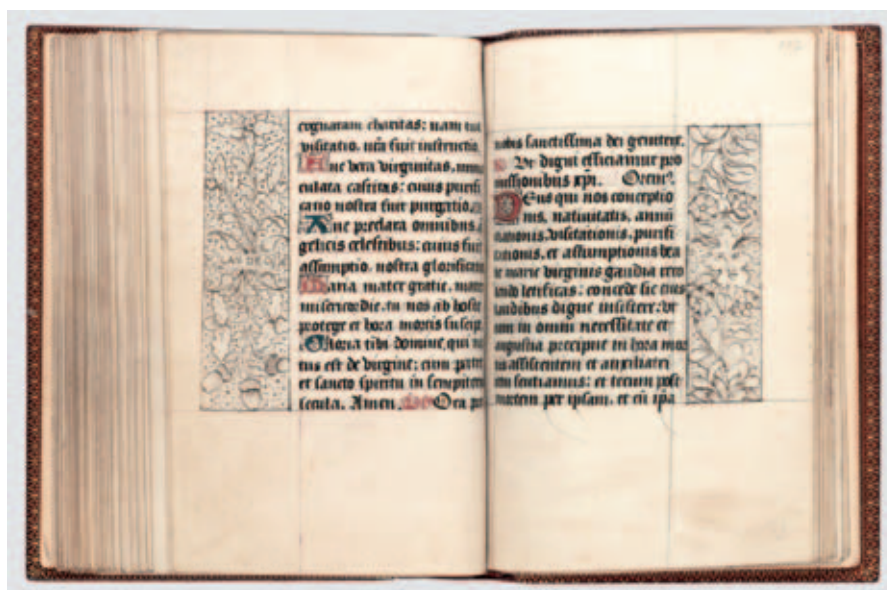 cognatam charitas: nam tua
visitatio. nra fuit instructio.
Aue vera virginitas, imma
culata castitas: cuius purifi
catio nostra fuit purgatio.
Aue preclara omnibus a
gelicis celestibus: cuius fuit
assumptio. nostra glorificati
Maria mater gratie, mater
misericordie, tu nos ab hoste
protege et hora mortis suscip
Gloria tibi domine, qui na
tus est de virgine: cum patre
et sancto spiritu in sempitern
secula. Amen. Ora pro
nobis sanctissima dei genitrix.
Vt digni efficiamur pro
missionibus xpi. Oremus.
Deus qui nos conceptio
nis, natiuitatis, annun
tiationis, visitationis, purifi
cationis, et assumptionis bea
te marie virginis gaudia reco
lendo letificas: concede sic eius
laudibus digne insistere: vt
eam in omni necessitate et
angustia precipue in hora mor
tis assistentem et auxiliatri
cem sentiamus: et tecum post
mortem per ipsam, et cu ipa